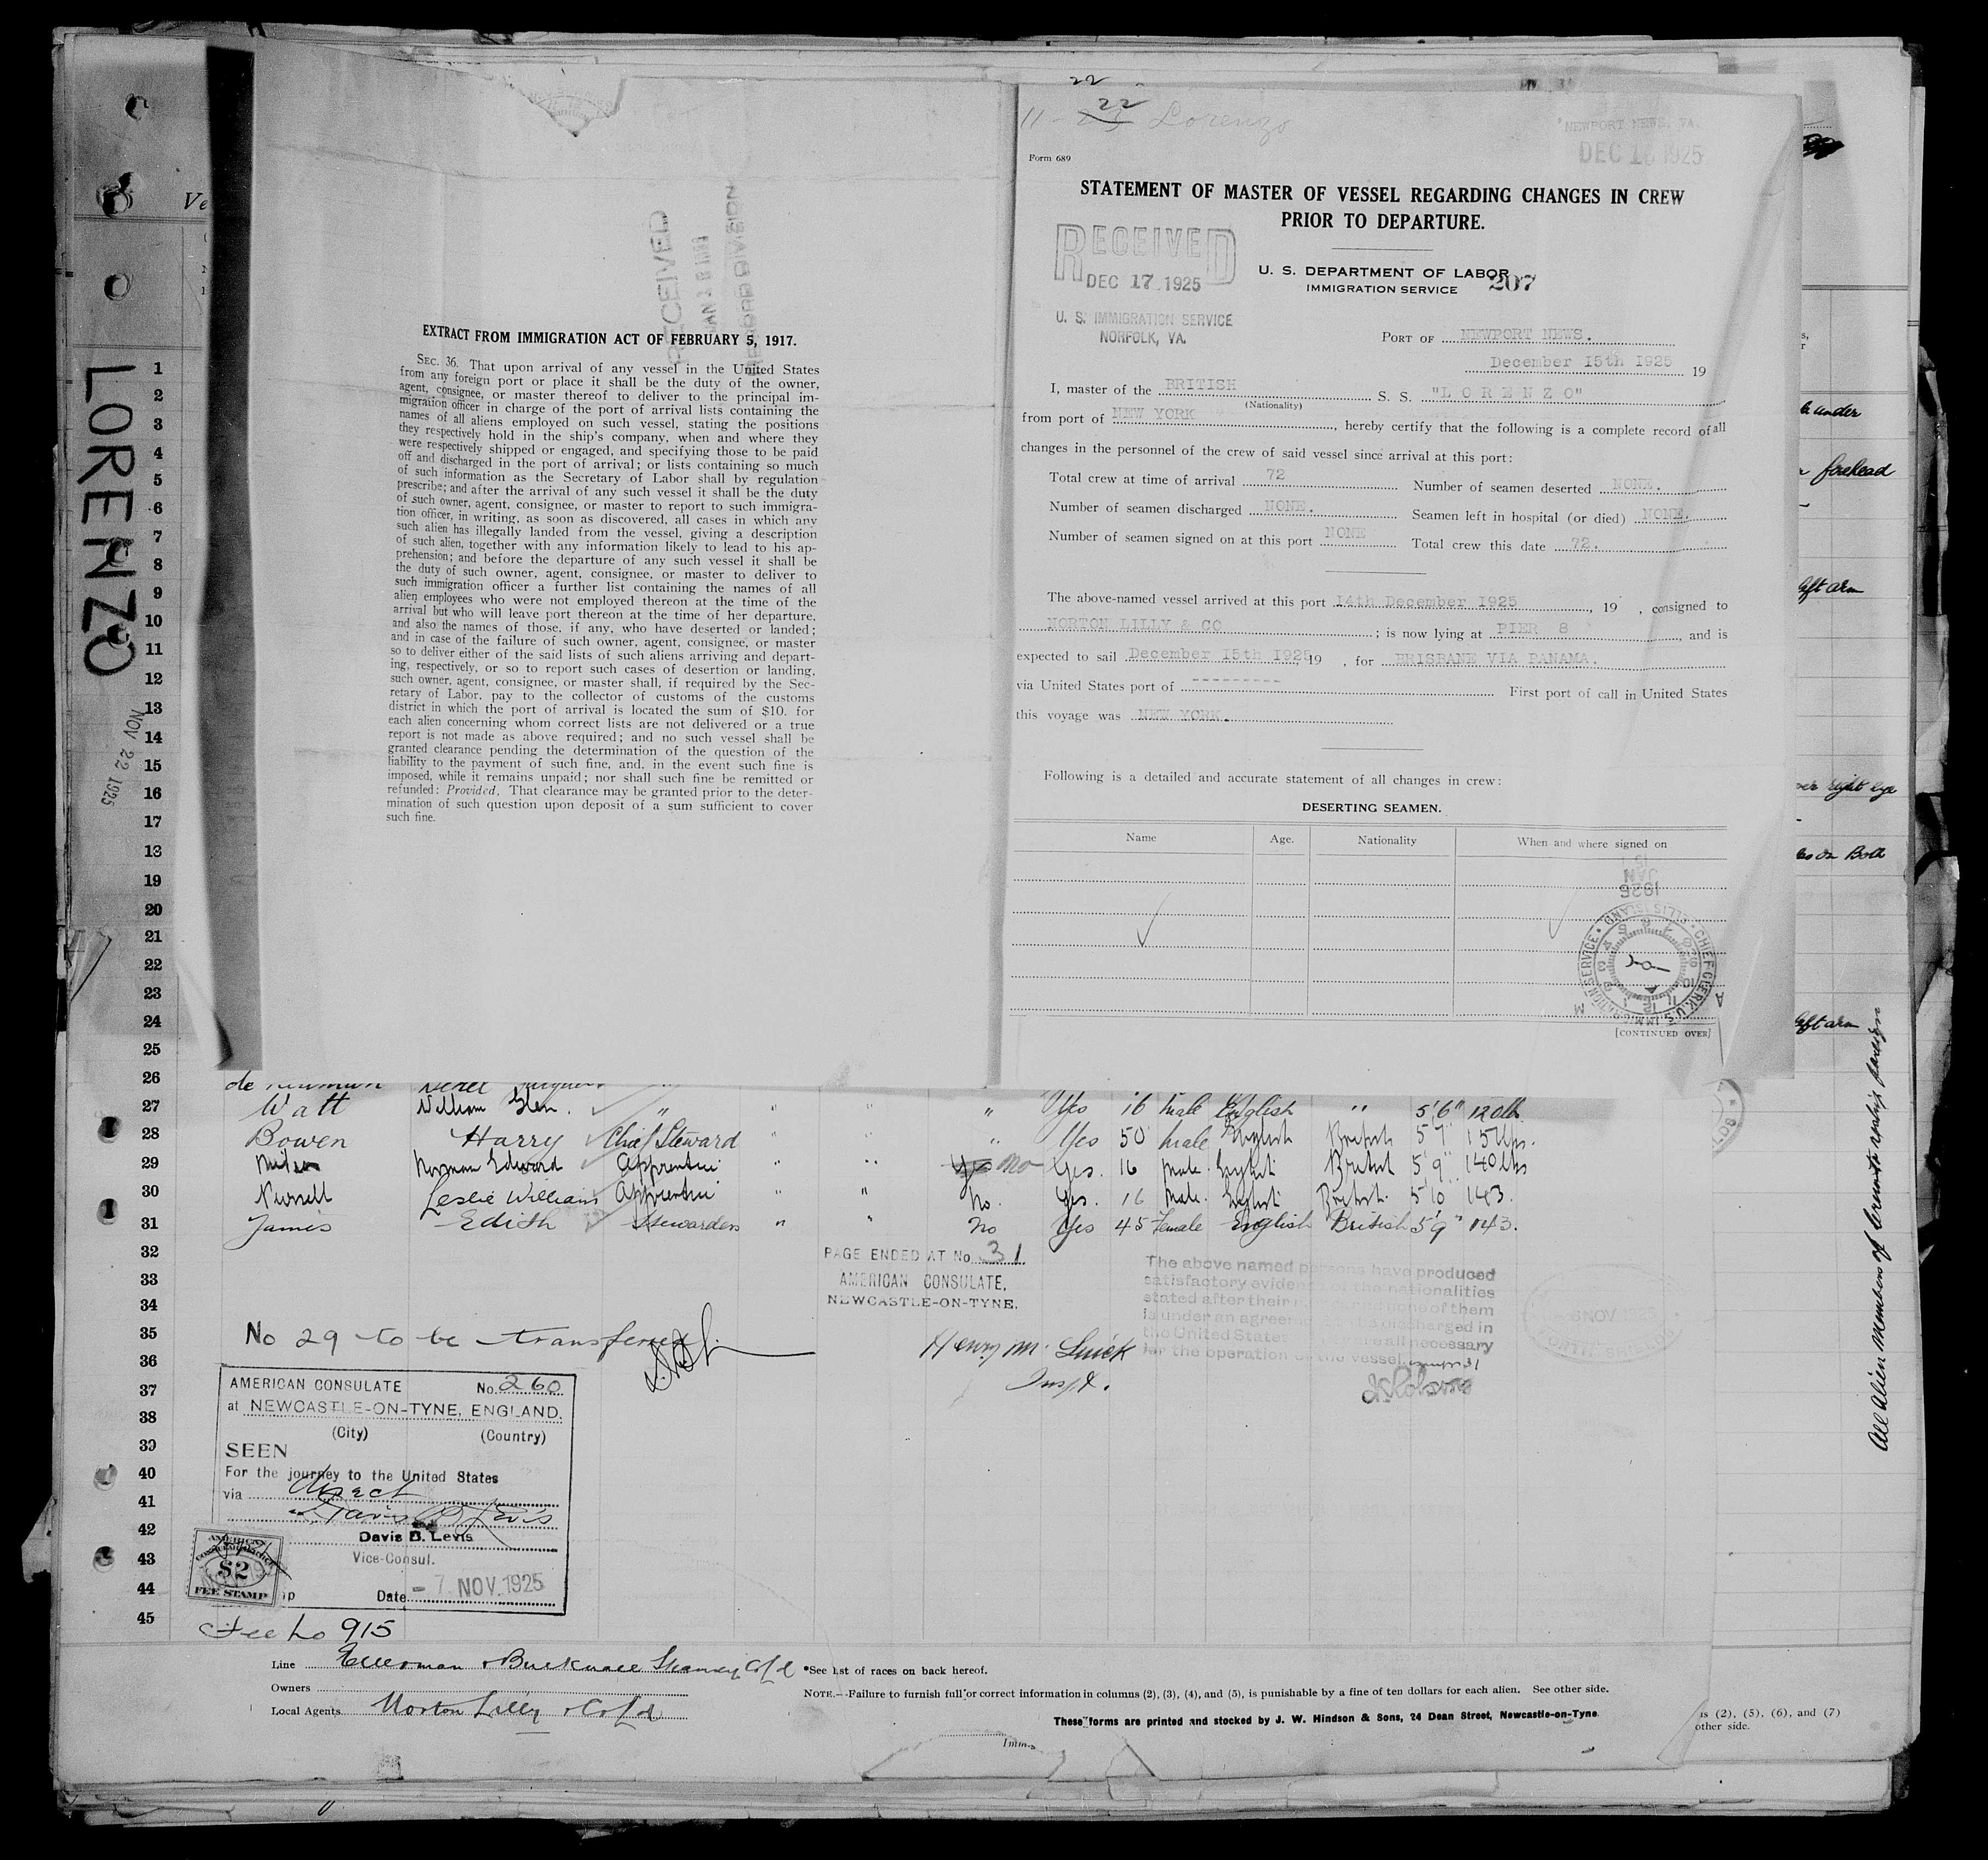 LORENZO
NOV 22 1925
Ve
RECEIVED
EXTRACT FROM IMMIGRATION ACT OF FEBRUARY 5, 1917.
SEC. 36. That upon arrival of any vessel in the United States
from any foreign port or place it shall be the duty of the owner,
agent, consignee, or master thereof to deliver to the principal im-
migration officer in charge of the port of arrival lists containing the
names of all aliens employed on such vessel, stating the positions
they respectively hold in the ship's company, when and where they
were respectively shipped or engaged, and specifying those to be paid
off and discharged in the port of arrival; or lists containing so much
of such information as the Secretary of Labor shall by regulation
prescribe; and after the arrival of any such vessel it shall be the duty
of such owner, agent, consignee, or master to report to such immigra-
tion officer, in writing, as soon as discovered, all cases in which any
such alien has illegally landed from the vessel, giving a description
of such alien, together with any information likely to lead to his ap-
prehension; and before the departure of any such vessel it shall be
the duty of such owner, agent, consignee, or master to deliver to
such immigration officer a further list containing the names of all
alien employees who were not employed thereon at the time of the
arrival but who will leave port thereon at the time of her departure,
and also the names of those, if any, who have deserted or landed;
and in case of the failure of such owner, agent, consignee, or master
so to deliver either of the said lists of such aliens arriving and depart-
ing, respectively, or so to report such cases of desertion or landing,
such owner, agent, consignee, or master shall, if required by the Sec-
retary of Labor, pay to the collector of customs of the customs
district in which the port of arrival is located the sum of $10. for
each alien concerning whom correct lists are not delivered or a true
report is not made as above required; and no such vessel shall be
granted clearance pending the determination of the question of the
liability to the payment of such fine, and, in the event such fine is
imposed, while it remains unpaid; nor shall such fine be remitted or
refunded: Provided, That clearance may be granted prior to the deter-
mination of such question upon deposit of a sum sufficient to cover
such fine.
22
22
11 - 23 Lorenzo
NEWPORT NEWS, VA.
DEC 16 1925
Form 689
STATEMENT OF MASTER OF VESSEL REGARDING CHANGES IN CREW
PRIOR TO DEPARTURE.
RECEIVED
DEC 17 1925
U. S. IMMIGRATION SERVICE
NORFOLK, VA.
U. S. DEPARTMENT OF LABOR
IMMIGRATION SERVICE
207
PORT OF NEWPORT NEWS.
December 15th 1925 19
I, master of the BRITISH S. S. "L O R E N Z O"
(Nationality)
from port of NEW YORK, hereby certify that the following is a complete record of all
changes in the personnel of the crew of said vessel since arrival at this port:
Total crew at time of arrival 72 Number of seamen deserted NONE.
Number of seamen discharged NONE. Seamen left in hospital (or died) NONE.
Number of seamen signed on at this port NONE Total crew this date 72.
The above-named vessel arrived at this port 14th December 1925, 19 , consigned to
NORTON LILLY & CO; is now lying at PIER 8, and is
expected to sail December 15th 1925 19 , for BRISBANE VIA PANAMA.
via United States port of --------- First port of call in United States
this voyage was NEW YORK.
Following is a detailed and accurate statement of all changes in crew:
DESERTING SEAMEN.
Name Age. Nationality When and where signed on
JAN
1926
CHIEF CLERK, U.S. IMMIGRATION SERVICE • ELLIS ISLAND
[CONTINUED OVER]
1
2
3
4
5
6
7
8
9
10
11
12
13
14
15
16
17
18
19
20
21
22
23
24
25
26 de
27 Watt William Glen. " " " " Yes 16 male English " 5'6" 120lb
28 Bowen Harry Chief Steward " Yes 50 male English British 5'7"
29 Norman Edward Apprentice " " Yes No Yes. 16 male. English British 5'9" 140lbs
30 Leslie William Apprentice " " No. Yes. 16 male. English British. 5'10" 143.
31 James Edith Stewardess " " No Yes 45 Female English British 5'9" 143.
32
33
34
35
36
37
38
39
40
41
42
43
44
45
PAGE ENDED AT No. 31
AMERICAN CONSULATE,
NEWCASTLE-ON-TYNE.
The above named persons have produced
satisfactory evidence of the nationalities
stated after their
is under an agreement discharged in
the United States all necessary
for the operation of the vessel.
No 29 to be transferred
Henry M.
Insp.
AMERICAN CONSULATE No. 260
at NEWCASTLE-ON-TYNE, ENGLAND.
(City) (Country)
SEEN
For the journey to the United States
via direct
Davis B. Levis
Davis B. Levis
Vice-Consul.
Date - 7 NOV. 1925
AMERICAN
$2
FEE STAMP
Fee No 915
Line Ellerman & Bucknall Steamship Co Ld
Owners
Local Agents Norton Lilly & Co Ld
*See list of races on back hereof.
NOTE.—Failure to furnish full or correct information in columns (2), (3), (4), and (5), is punishable by a fine of ten dollars for each alien. See other side.
These forms are printed and stocked by J. W. Hindson & Sons, 24 Dean Street, Newcastle-on-Tyne
Imm.
under
forehead
left arm
over right eye
on Both
left arm
All Alien Members of Crew to reship foreign
ns (2), (5), (6), and (7)
other side.